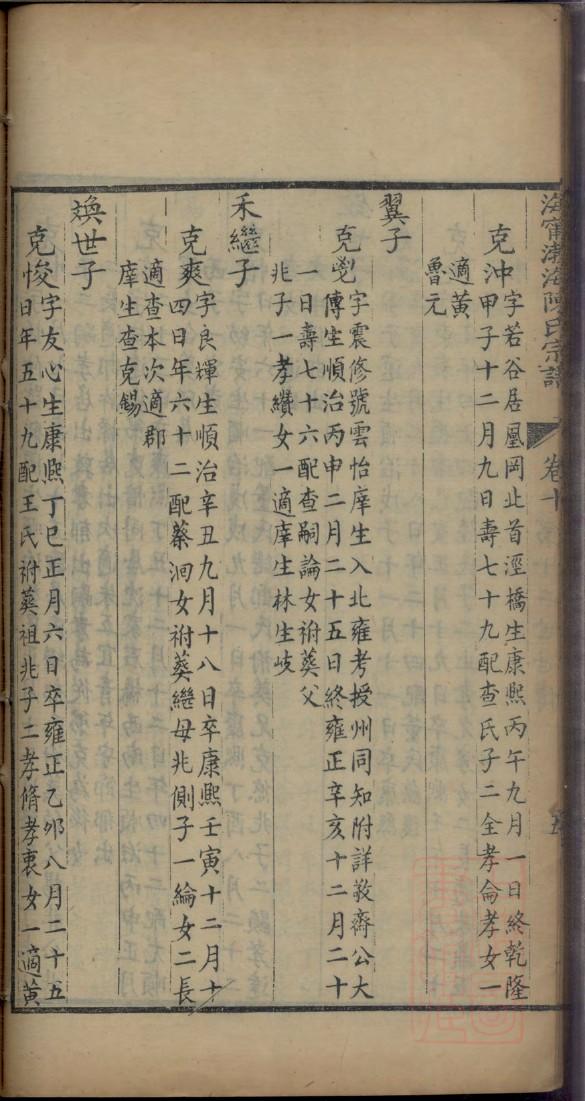 海甯渤海陳氏宗譜
卷十
克沖
字若谷居凰岡北首涇橋生康熙丙午九月一日終乾隆
甲子十二月九日壽七十九配查氏子二全孝侖孝女一
適黃
魯元
翼子
克彪
字震修號雲怡庠生入北雍考授州同知附詳敬齋公大
傳生順治丙申二月二十五日終雍正辛亥十二月二十
一日壽七十六配查嗣論女祔葬父
兆子一孝纘女一適庠生林生岐
禾繼子
克爽
字良輝生順治辛丑九月十八日卒康熙壬寅十二月十
四日年六十二配蔡泂女祔葬繼母兆側子一綸女二長
適查本次適郡
庠生查克錫
煥世子
克悛
字友心生康熙丁巳正月六日卒雍正乙卯八月二十五
日年五十九配王氏祔葬祖兆子二孝脩孝衷女一適黃